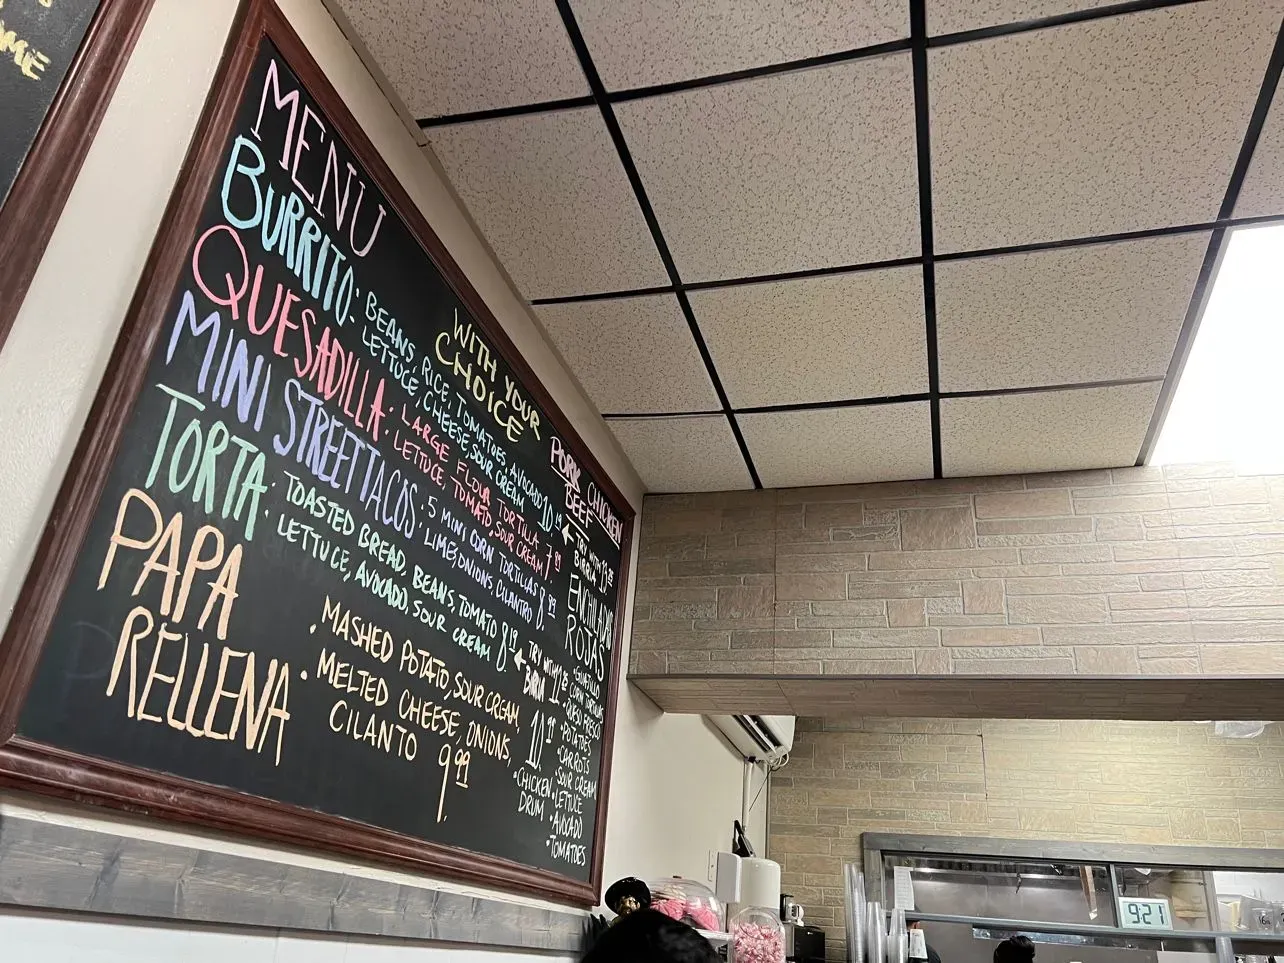 MENU
WITH YOUR
CHOICE
PORK CHICKEN
BEEF
BURRITO: BEANS, RICE, TOMATOES, AVOCADO
LETTUCE, CHEESE, SOUR CREAM 10.
TRY WITH
BIRRIA
QUESADILLA: LARGE FLOUR TORTILLA
LETTUCE, TOMATO, SOUR CREAM 7.99
MINI STREET TACOS: 5 MINI CORN TORTILLAS
LIME, ONIONS, CILANTRO 8.
TORTA: TOASTED BREAD, BEANS, TOMATO
LETTUCE, AVOCADO, SOUR CREAM 8.
TRY WITH
BIRRIA
PAPA
RELLENA
: MASHED POTATO, SOUR CREAM,
MELTED CHEESE, ONIONS,
CILANTO 9.99
ENCHILADAS
ROJAS
• GUAJILLO
CORN TORTILLAS
• QUESO FRESCO
• POTATOES
• CARROTS
• SOUR CREAM
• LETTUCE
• AVOCADO
• TOMATOES
10.
• CHICKEN
DRUM
9:21